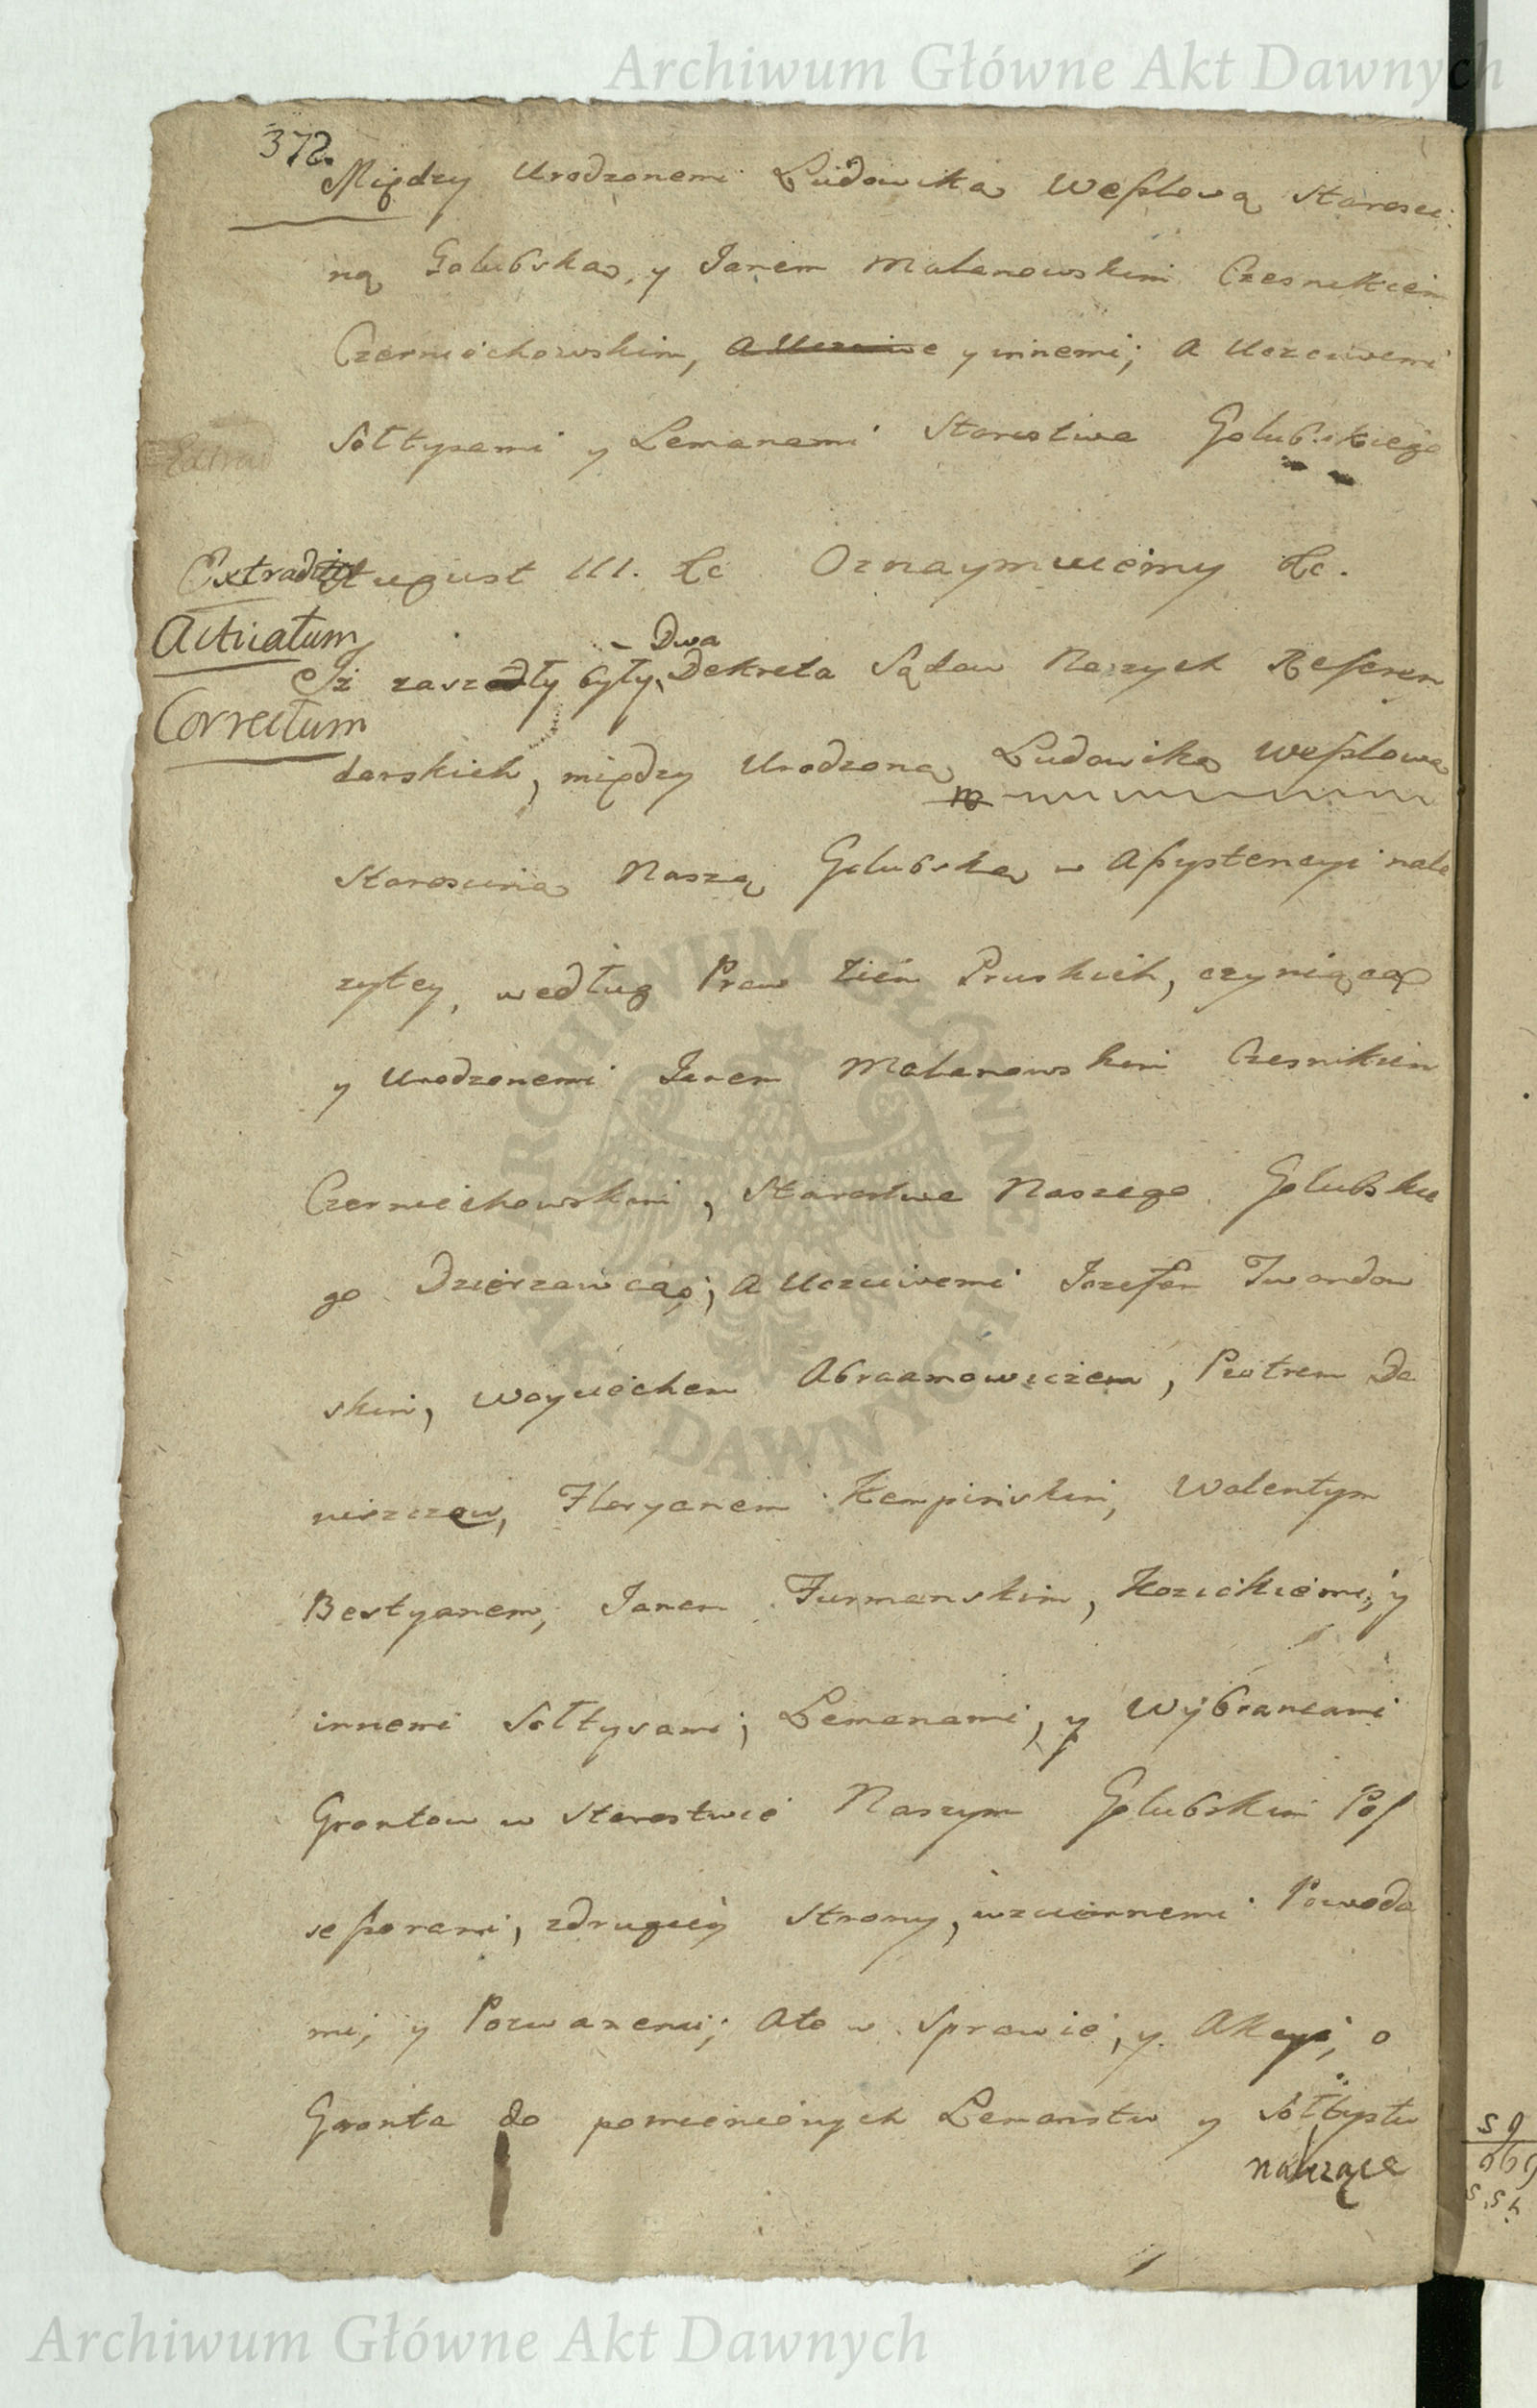 Archiwum Główne Akt Dawnych
372.
Między Urodzonemi Ludowiką Wesslową Starosci
ną Golubską, y Janem Malanowskim Czesnikiem
Czerniechowskim, a Uczciwe y innemi; a Uczciwemi
Sołtysami y Lemanami Starostwa Golubskiego
Extradit
August III. &c Oznaymuiemy &c.
Actuatum
Dwa
Iż zaszły były Dekreta Sądow Naszych Referen
Correctum
darskich, między Urodzoną Ludowiką Wesslową
Starosciną Naszą Golubską w Assystencyi nale
zytey, według Praw Ziem Pruskich, czyniącą
y Urodzonemi Janem Malanowskim Czesnikiem
Czerniechowskim, Starostwa Naszego Golubskie
go Dzierzawcą; a Uczciwemi Jozefem Twardow
skim, Woyciechem Abraamowiczem, Piotrem Da
niszczew, Floryanem Kempinskim, Walentym
Bestyanem, Janem Furmanskim, Kozickiemi, y
innemi Sołtysami; Lemanami, y Wybrancami
Grontow w Starostwie Naszym Golubskim Pos
sessorami, zdrugiey strony, wzaiemnemi Powoda
mi, y Pozwanemi; Ato w Sprawie, y Akcyi, o
Gronta do pomienionych Lemanstw y Sołtystw
nalezące
ARCHIWUM GŁÓWNE AKT DAWNYCH
Archiwum Główne Akt Dawnych